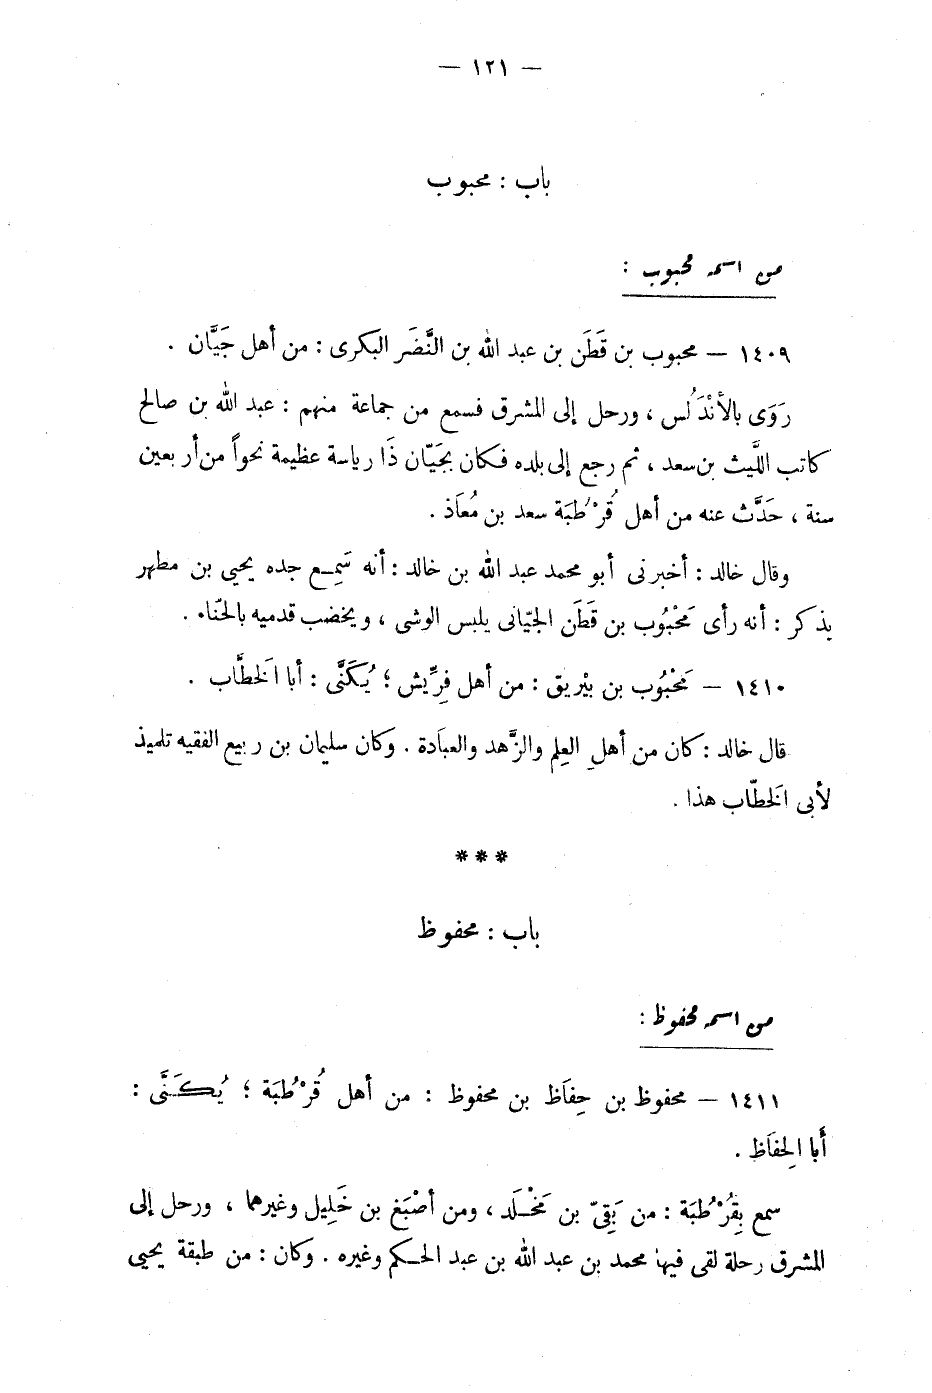 — ١٢١ —
باب : محبوب
من اسمه محبوب :
١٤٠٩ — محبوب بن قَطَن بن عبد الله بن النَّضَر البكرى : من أهل جَيَّان .
رَوَى بالأنْدَلُس ، ورحل إلى المشرق فسمع من جماعة منهم : عبد الله بن صالح
كاتب اللَّيث بن سعد ، ثم رجع إلى بلده فكان بجَيّان ذَا رياسة عظيمة نحواً من أربعين
سنة ، حَدَّث عنه من أهل قُرْطُبَة سعد بن مُعَاذ .
وقال خالد : أخبرنى أبو محمد عبد الله بن خالد : أنه سَمِع جده يحيى بن مطهر
يذكر : أنه رأى مَحْبُوب بن قَطَن الجيّانى يلبس الوشى ، ويخضب قدميه بالحنّاء .
١٤١٠ — مَحْبُوب بن بيْريق : من أهل فِرِّيش ؛ يُكَنَّى : أبا الَخطَّاب .
قال خالد : كان من أهلِ العِلم والزَّهد والعبَادة . وكان سليمان بن ربيع الفقيه تلميذ
لأبى الَخطّاب هذا .
***
باب : محفوظ
من اسمه محفوظ :
١٤١١ — محفوظ بن حِفَاظ بن محفوظ : من أهل قُرْطُبَة ؛ يُكَنَّى :
أَبا الِحفَاظ .
سمع بِقُرْطُبَة : من بَقِىّ بن مَخْلَد ، ومن أصْبَغ بن خَلِيل وغيرهما ، ورحل إلى
المشرق رحلة لقى فيها محمد بن عبد الله بن عبد الحكم وغيره . وكان : من طبقة يحيى